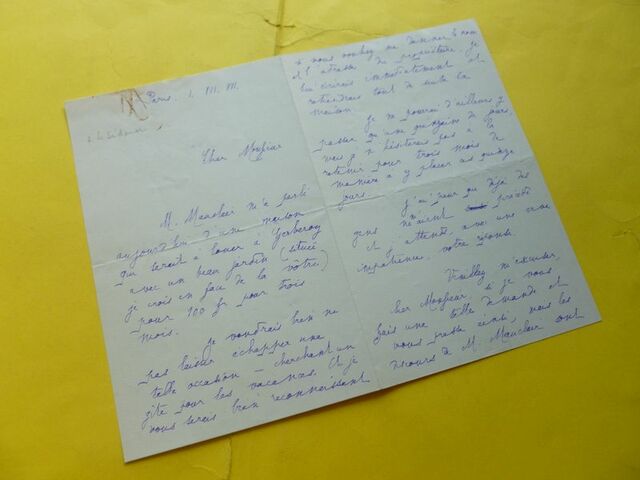 Paris. 1. III. III.
Cher Monsieur
M. Mauclair m'a parlé
aujourd'hui d'une maison
qui serait à louer à Gerberoy
avec un beau jardin (située
je crois en face de la vôtre)
pour 100 fr pour trois
mois.
je voudrais bien ne
pas laisser échapper une
telle occasion – cherchant un
gîte pour les vacances. Et je
vous serais bien reconnaissant
si vous vouliez me donner le nom
et l'adresse du propriétaire. je
lui écrirais immédiatement et
retiendrais tout de suite la
maison.
je ne pourrai d'ailleurs y
passer qu'une quinzaine de jours,
mais je n'hésiterais pas à la
retenir pour trois mois de
manière à y placer ces quinze
jours.
j'ai peur que déjà des
gens n'aient procédé
et j'attends, avec une vraie
impatience, votre réponse.
Veuillez m'excuser,
cher Monsieur, si je vous
fais une telle demande et
vous presse ainsi, mais les
discours de M. Mauclair sont